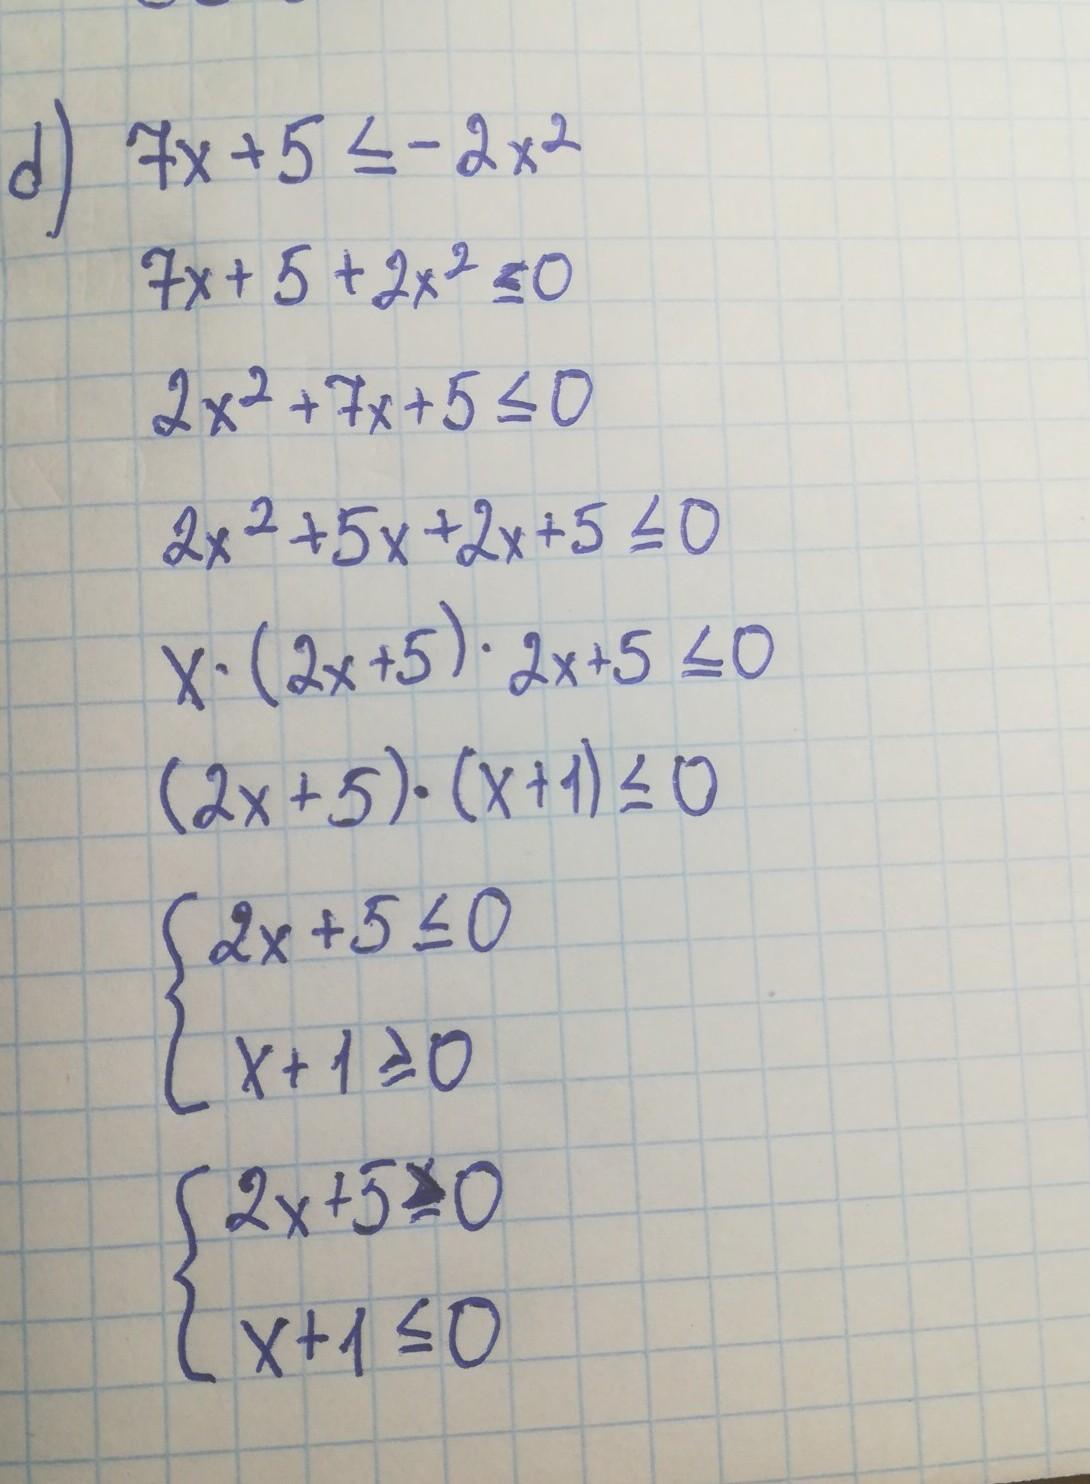 d) 7x + 5 ≤ - 2x²
7x + 5 + 2x² ≤ 0
2x² + 7x + 5 ≤ 0
2x² + 5x + 2x + 5 ≤ 0
x · (2x + 5) · 2x + 5 ≤ 0
(2x + 5) · (x + 1) ≤ 0
{ 2x + 5 ≤ 0
x + 1 ≥ 0
{ 2x + 5 ≥ 0
x + 1 ≤ 0